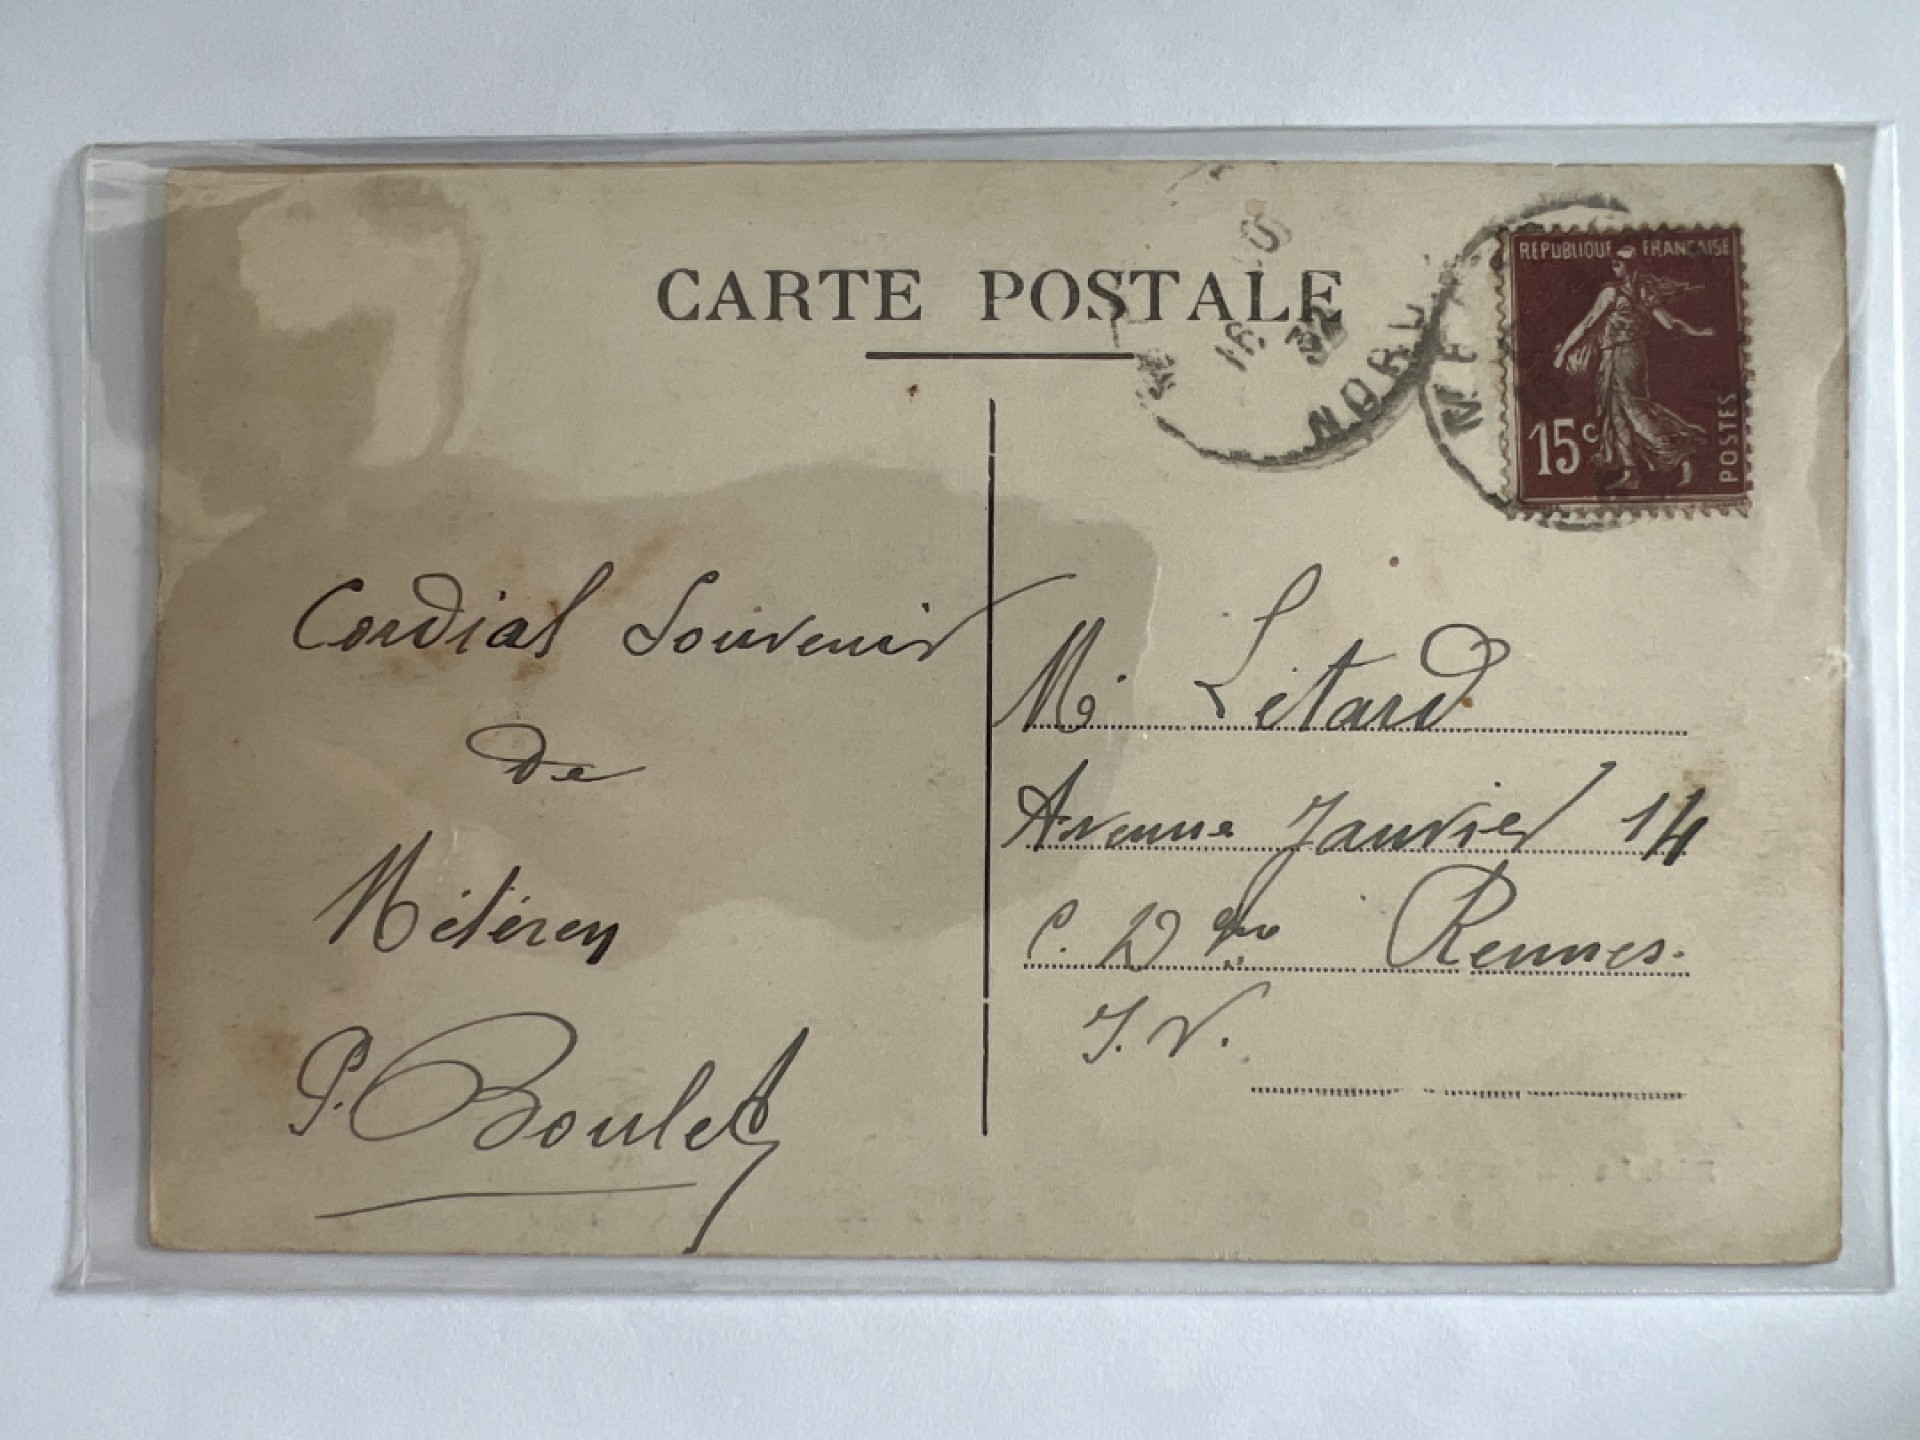 CARTE POSTALE
REPUBLIQUE FRANÇAISE
15c
POSTES
16
32
NORD
Cordial Souvenir
de
Météren
P. Boulet
Mr Létard
Avenue Janvier 14
C. D Rennes.
I. V.